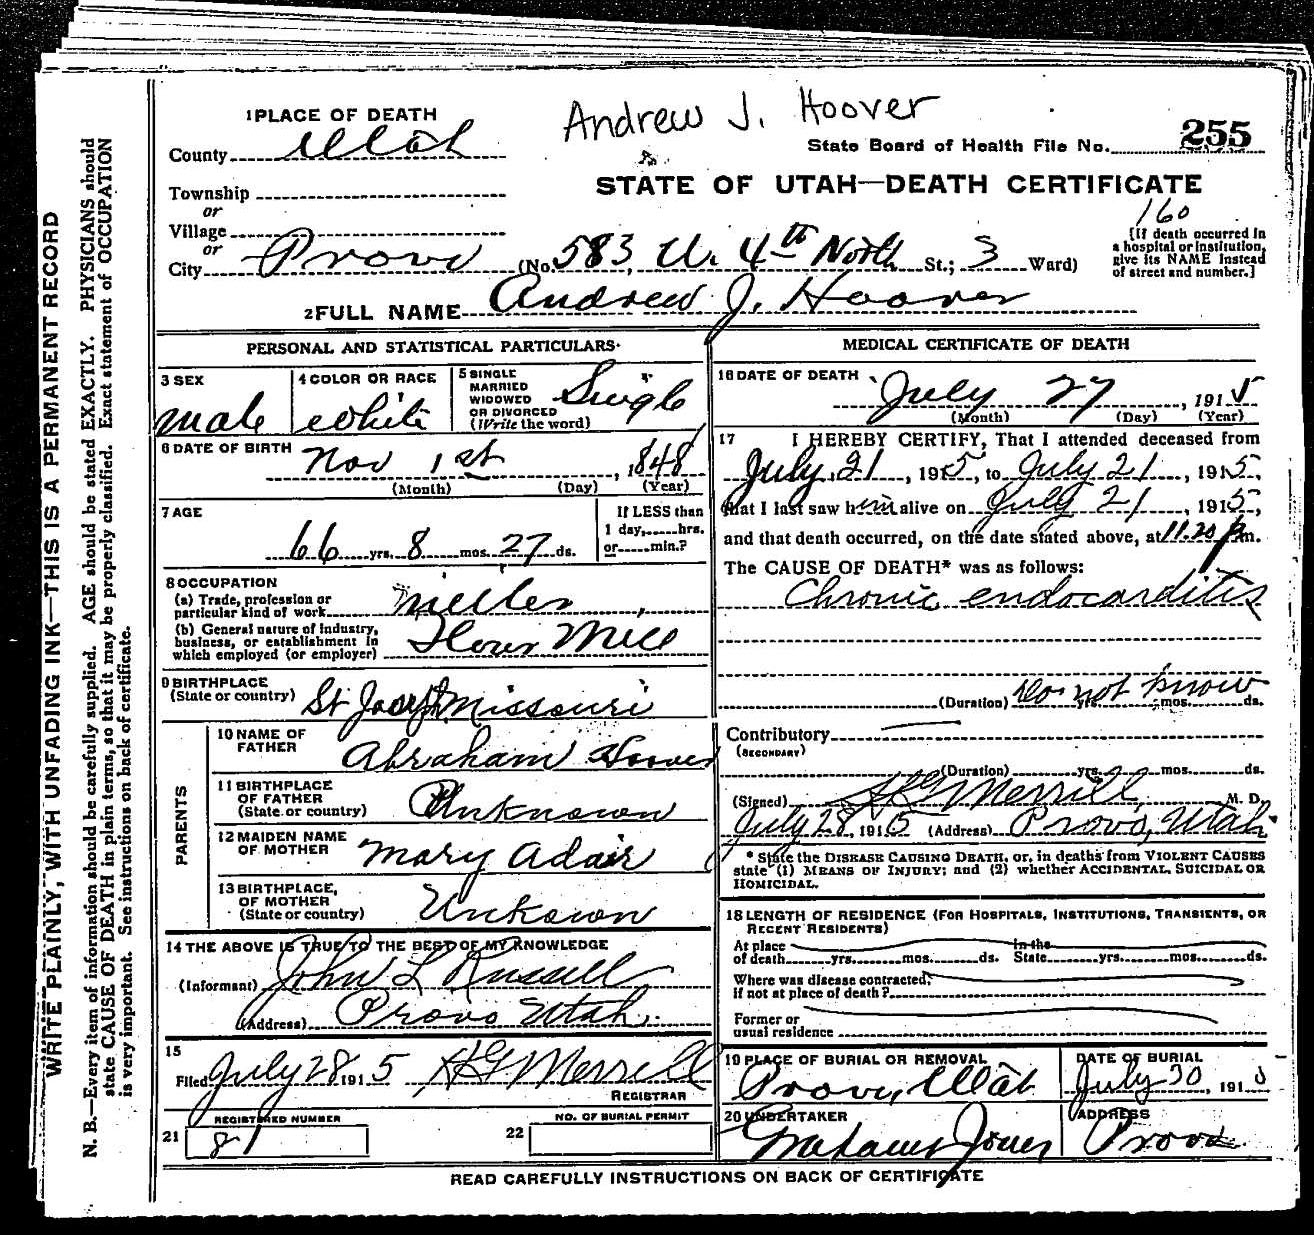 WRITE PLAINLY, WITH UNFADING INK—THIS IS A PERMANENT RECORD
N. B.—Every item of information should be carefully supplied. AGE should be stated EXACTLY. PHYSICIANS should
state CAUSE OF DEATH in plain terms, so that it may be properly classified. Exact statement of OCCUPATION
is very important. See instructions on back of certificate.
Andrew J. Hoover
1 PLACE OF DEATH
County Utah
State Board of Health File No. 255
STATE OF UTAH—DEATH CERTIFICATE
Township
or
Village
or
City Provo (No. 583, W. 4th North St.; 3 Ward)
160
[If death occurred in
a hospital or institution,
give its NAME instead
of street and number.]
2 FULL NAME Andrew J. Hoover
PERSONAL AND STATISTICAL PARTICULARS
3 SEX
male
4 COLOR OR RACE
white
5 SINGLE
MARRIED
WIDOWED
OR DIVORCED
(Write the word)
Single
6 DATE OF BIRTH
Nov 1st, 1848
(Month) (Day) (Year)
7 AGE
66 yrs. 8 mos. 27 ds.
If LESS than
1 day, hrs.
or min.?
8 OCCUPATION
(a) Trade, profession or
particular kind of work miller
(b) General nature of industry,
business, or establishment in
which employed (or employer) Flour Mill
9 BIRTHPLACE
(State or country) St Joseph Missouri
PARENTS
10 NAME OF
FATHER Abraham Hoover
11 BIRTHPLACE
OF FATHER
(State or country) Unknown
12 MAIDEN NAME
OF MOTHER Mary Adair
13 BIRTHPLACE,
OF MOTHER
(State or country) Unknown
14 THE ABOVE IS TRUE TO THE BEST OF MY KNOWLEDGE
(Informant) John L Russell
(Address) Provo Utah.
15
Filed July 28 1915 H G Merrill
REGISTRAR
REGISTERED NUMBER
21 81
NO. OF BURIAL PERMIT
22
MEDICAL CERTIFICATE OF DEATH
16 DATE OF DEATH
July 27, 1915
(Month) (Day) (Year)
17 I HEREBY CERTIFY, That I attended deceased from
July 21, 1915, to July 21, 1915,
that I last saw him alive on July 21, 1915,
and that death occurred, on the date stated above, at 11.20 P m.
The CAUSE OF DEATH* was as follows:
Chronic endocarditis
(Duration) Do not know yrs. mos. ds.
Contributory
(SECONDARY)
(Duration) yrs. mos. ds.
(Signed) Merrill M. D.
July 28, 1915 (Address) Provo, Utah.
* State the DISEASE CAUSING DEATH, or, in deaths from VIOLENT CAUSES
state (1) MEANS OF INJURY; and (2) whether ACCIDENTAL, SUICIDAL OR
HOMICIDAL.
18 LENGTH OF RESIDENCE (FOR HOSPITALS, INSTITUTIONS, TRANSIENTS, OR
RECENT RESIDENTS)
At place In the
of death yrs. mos. ds. State yrs. mos. ds.
Where was disease contracted,
if not at place of death?
Former or
usual residence
19 PLACE OF BURIAL OR REMOVAL
Provo, Utah
DATE OF BURIAL
July 30, 1915
20 UNDERTAKER
Jones
ADDRESS
Provo
READ CAREFULLY INSTRUCTIONS ON BACK OF CERTIFICATE